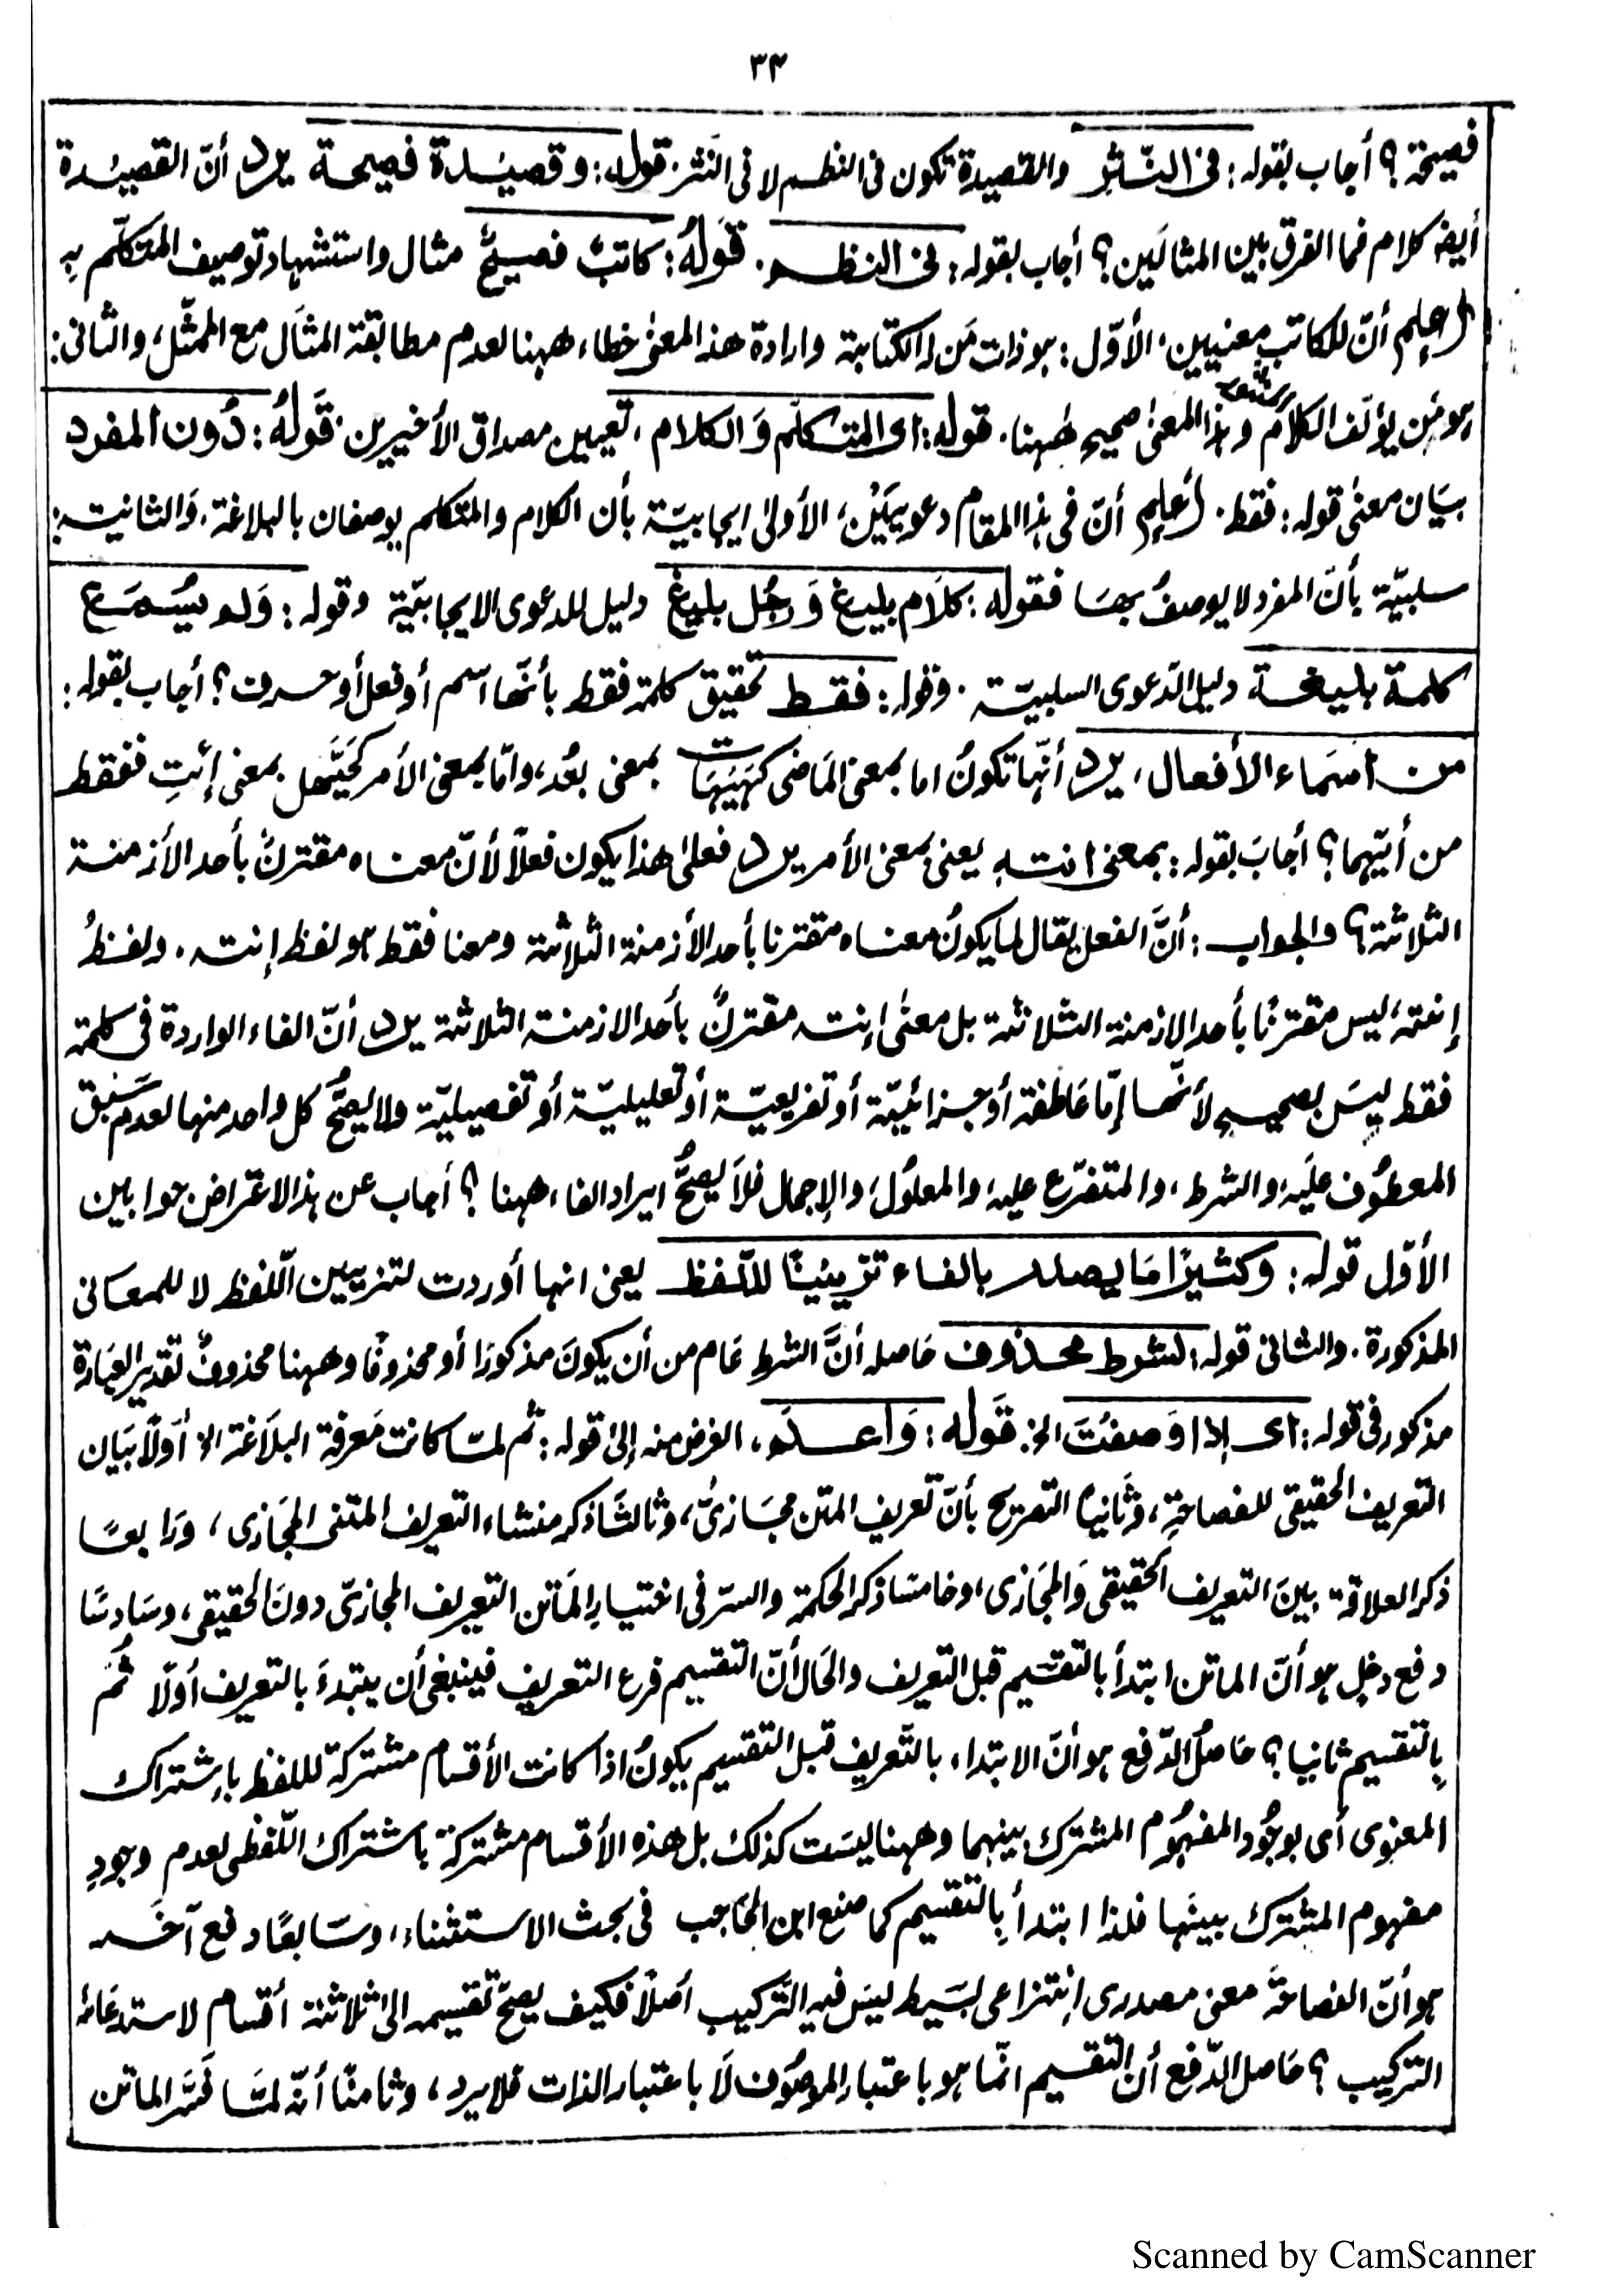 ٣٤
فصيحة؟ أجاب بقوله: فى النَّثر والقصيدة تكون فى النظم لا فى النثر. قوله: وقصيدة فصيحة يرد أنّ القصيدة
أيضا كلام فما الفرق بين المثالَين؟ أجاب بقوله: فى النظم. قَولهُ: كاتبٌ فصيحٌ مثال واستشهاد توصيف المتكلّم بِه
إعلم أنّ للكاتب معنيين، الأوّل: هو ذات مَن له الكتابة وارادة هذ المعنىٰ خطاء ههنا لعدم مطابقة المثال مع الممثّل، والثانى:
هو مَن يؤلّف الكلام وهذا المعنىٰ صحيح هٰهنا. قوله: اى المتكلّم وَالكلام، تعيين مصداق الأخيرين. قَولهُ: دُون المفرد
بيَان معنىٰ قوله: فقط. إعلم أنّ فى هذا المقام دعويَيْن، الأولىٰ ايجابيّة بأن الكلام والمتكلم يوصفان بالبلاغة، وَالثانية:
سلبيّة بأنّ المفرد لا يوصفُ بها فقوله: كلَام بليغ وَرجُل بليغ دليل للدعوى الايجابيّة وقوله: وَلم يُسمَع
كلمة بليغة دليل الدّعوى السلبيّة. وقوله: فقط تحقيق كلمة فقط بأنّها اسم أو فعل أو حرف؟ أجاب بقوله:
من اسمَاء الأفعال، يرد أنّها تكونُ اما بمعنى المَاضى كهَيهَات بمعنى بعُد، وامّا بمعنى الأمر كحَيَّهل بمعنى إئتِ ففقط
من أيّهما؟ أجابَ بقوله: بمعنى انته يعنى بمعنى الأمر يرد فعلىٰ هذا يكون فعلًا لأنّ معناه مقترنٌ بأحد الأزمنة
الثلاثة؟ والجواب: أنَّ الفعل يقال لما يكونُ معناه مقترنا بأحد الأزمنة الثلاثة ومعنا فقط هو لفظ إنته. ولفظُ
إنته، ليس مقترنًا بأحد الازمنة الثلاثة بل معنىٰ إنته مقترنٌ بأحد الازمنة الثلاثة يرد أنّ الفاء الواردة فى كلمة
فقط ليسَ بصحيح لأنّها إمّا عَاطفة أو جزائيّة أو تفريعيّة أو تعليليّة أو تفصيليّة ولا يصحُّ كل واحد منها لعدم سَبق
المعطُوف علَيه، والشرط، والمتفرّع عليه، والمعلُول، والإجمال فلَا يصحُّ ايراد الفاء ههنا؟ أجاب عن هذا الاعتراض جوابين
الأوّل قوله: وكثيرًا مَا يصدر بالفاء تزيينًا للّفظ يعنى انها أوردت لتزيين اللّفظ لا للمعانى
المذكورة. والثانى قوله: لشرط محذوف حَاصله أنَّ الشرط عَام من أن يكونَ مذكورًا أو محذوفًا وههنا محذوفٌ تقدير العبَارة
مذكور فى قوله: اى اذا وَصفتَ الخ. قَوله: وَاعلم، الغرض منه إلىٰ قوله: ثم لمّا كانت مَعرفة البلَاغة الخ أوّلًا بَيان
التعريف الحقيقى للفصاحة، وثَانيًا التصريح بأنّ تعريف المتن مجَازىٌّ، وثالثًا ذكر منشاء التعريف المتنى المجَازى، ورَابعًا
ذكر العلاقة بينَ التعريف الحقيقى وَالمجَازى، وخامسًا ذكر الحكمة والسرّ فى اختيار المَاتن التعريف المجازىّ دونَ الحقيقى، وسَادسًا
دفع دخلٍ هو أنّ الماتن ابتدأ بالتقسيم قبل التعريف والحَال أنّ التقسيم فرع التعريف فينبغى أن يبتدءَ بالتعريف أولًا ثُم
بِالتقسيم ثانيا؟ حَاصلُ الدّفع هو أنّ الابتداء بالتّعريف قبل التقسيم يكونُ اذا كانت الأقسام مشتركة لللفظ باِشتراك
المعنوى أى بوجُود المفهُوم المشترك بينهما وههنا ليسَت كذلك بل هذه الأقسام مشتركة باشتراك اللّفظى لعدم وجودِ
مفهوم المشترك بينَها فلذا ابتدأ بِالتقسيم كما صنع ابن الحَاجب فى بحث الاستثناء، وسَابعًا دفع آخَر
هو أنّ الفصاحَةَ معنى مصدرى إنتزاعى بسَيط ليسَ فيه التَّركيب أصَلًا فكيف يصحّ تقسيمه الىٰ ثلاثة أقسام لاستدعَائه
التركيب؟ حَاصل الدّفع أن التقسيم انمّا هو باعتبار الموصُوف لَا باعتبار الذات فلا يرد، وثامنًا أنّه لمّا فَسَّر الماتن
Scanned by CamScanner